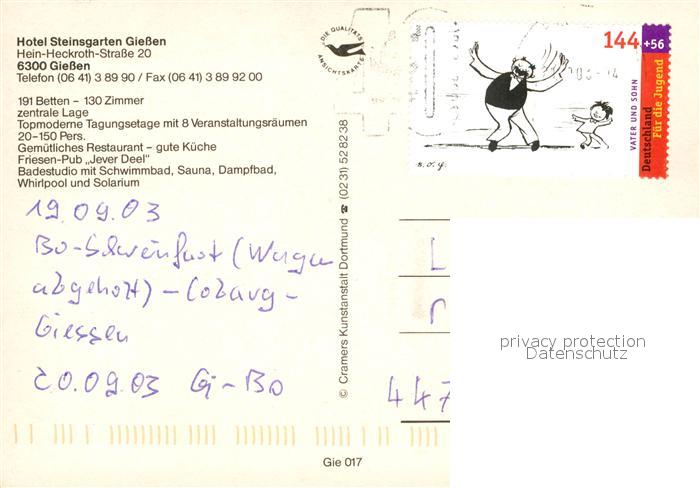 Hotel Steinsgarten Gießen
Hein-Heckroth-Straße 20
6300 Gießen
Telefon (06 41) 3 89 90 / Fax (06 41) 3 89 92 00
191 Betten – 130 Zimmer
zentrale Lage
Topmoderne Tagungsetage mit 8 Veranstaltungsräumen
20–150 Pers.
Gemütliches Restaurant – gute Küche
Friesen-Pub „Jever Deel"
Badestudio mit Schwimmbad, Sauna, Dampfbad,
Whirlpool und Solarium
19.09.03
Bo-Schweinfurt (Wagen
abgeholt) – Coburg –
Giessen
20.09.03 Gi-Bo
DIE QUALITÄTS
ANSICHTSKARTE
© Cramers Kunstanstalt Dortmund ☎ (0231) 528238
144 +56
VATER UND SOHN
Deutschland
Für die Jugend
e.o.p.
L
447
privacy protection
Datenschutz
Gie 017